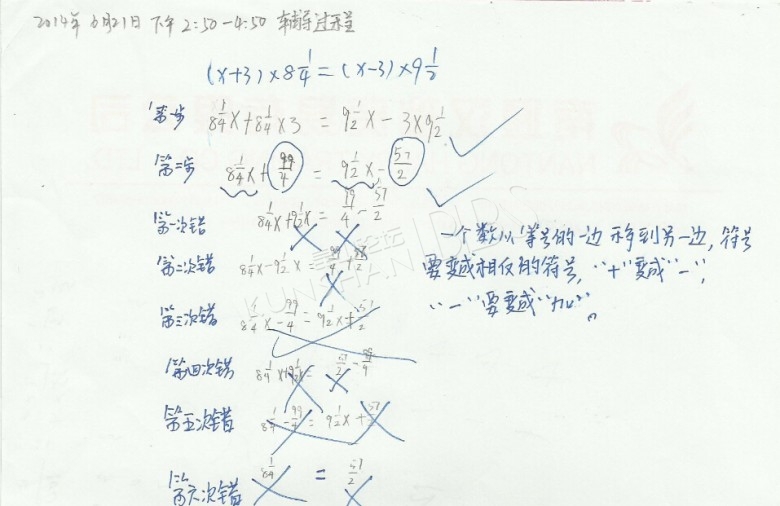 2014年6月21日下午2:50-4:50 辅导过程
(x+3)×8 1/4=(x-3)×9 1/2
第一步 8 1/4x+8 1/4×3 = 9 1/2x-3×9 1/2
第二步 8 1/4x+99/4 = 9 1/2x-57/2
第一次错 8 1/4x+9 1/2x = 99/4-57/2
第二次错 8 1/4x-9 1/2x = 99/4+57/2
第三次错 8 1/4x-99/4 = 9 1/2x+57/2
第四次错 8 1/4x+9 1/2x = 57/2-99/4
第五次错 8 1/4-99/4 = 9 1/2x+57/2
第六次错 8 1/4 = 57/2
一个数从等号的一边移到另一边,符号
要变成相反的符号,"+"变成"-",
"-"要变成"加"。
KUNSHAN BBS